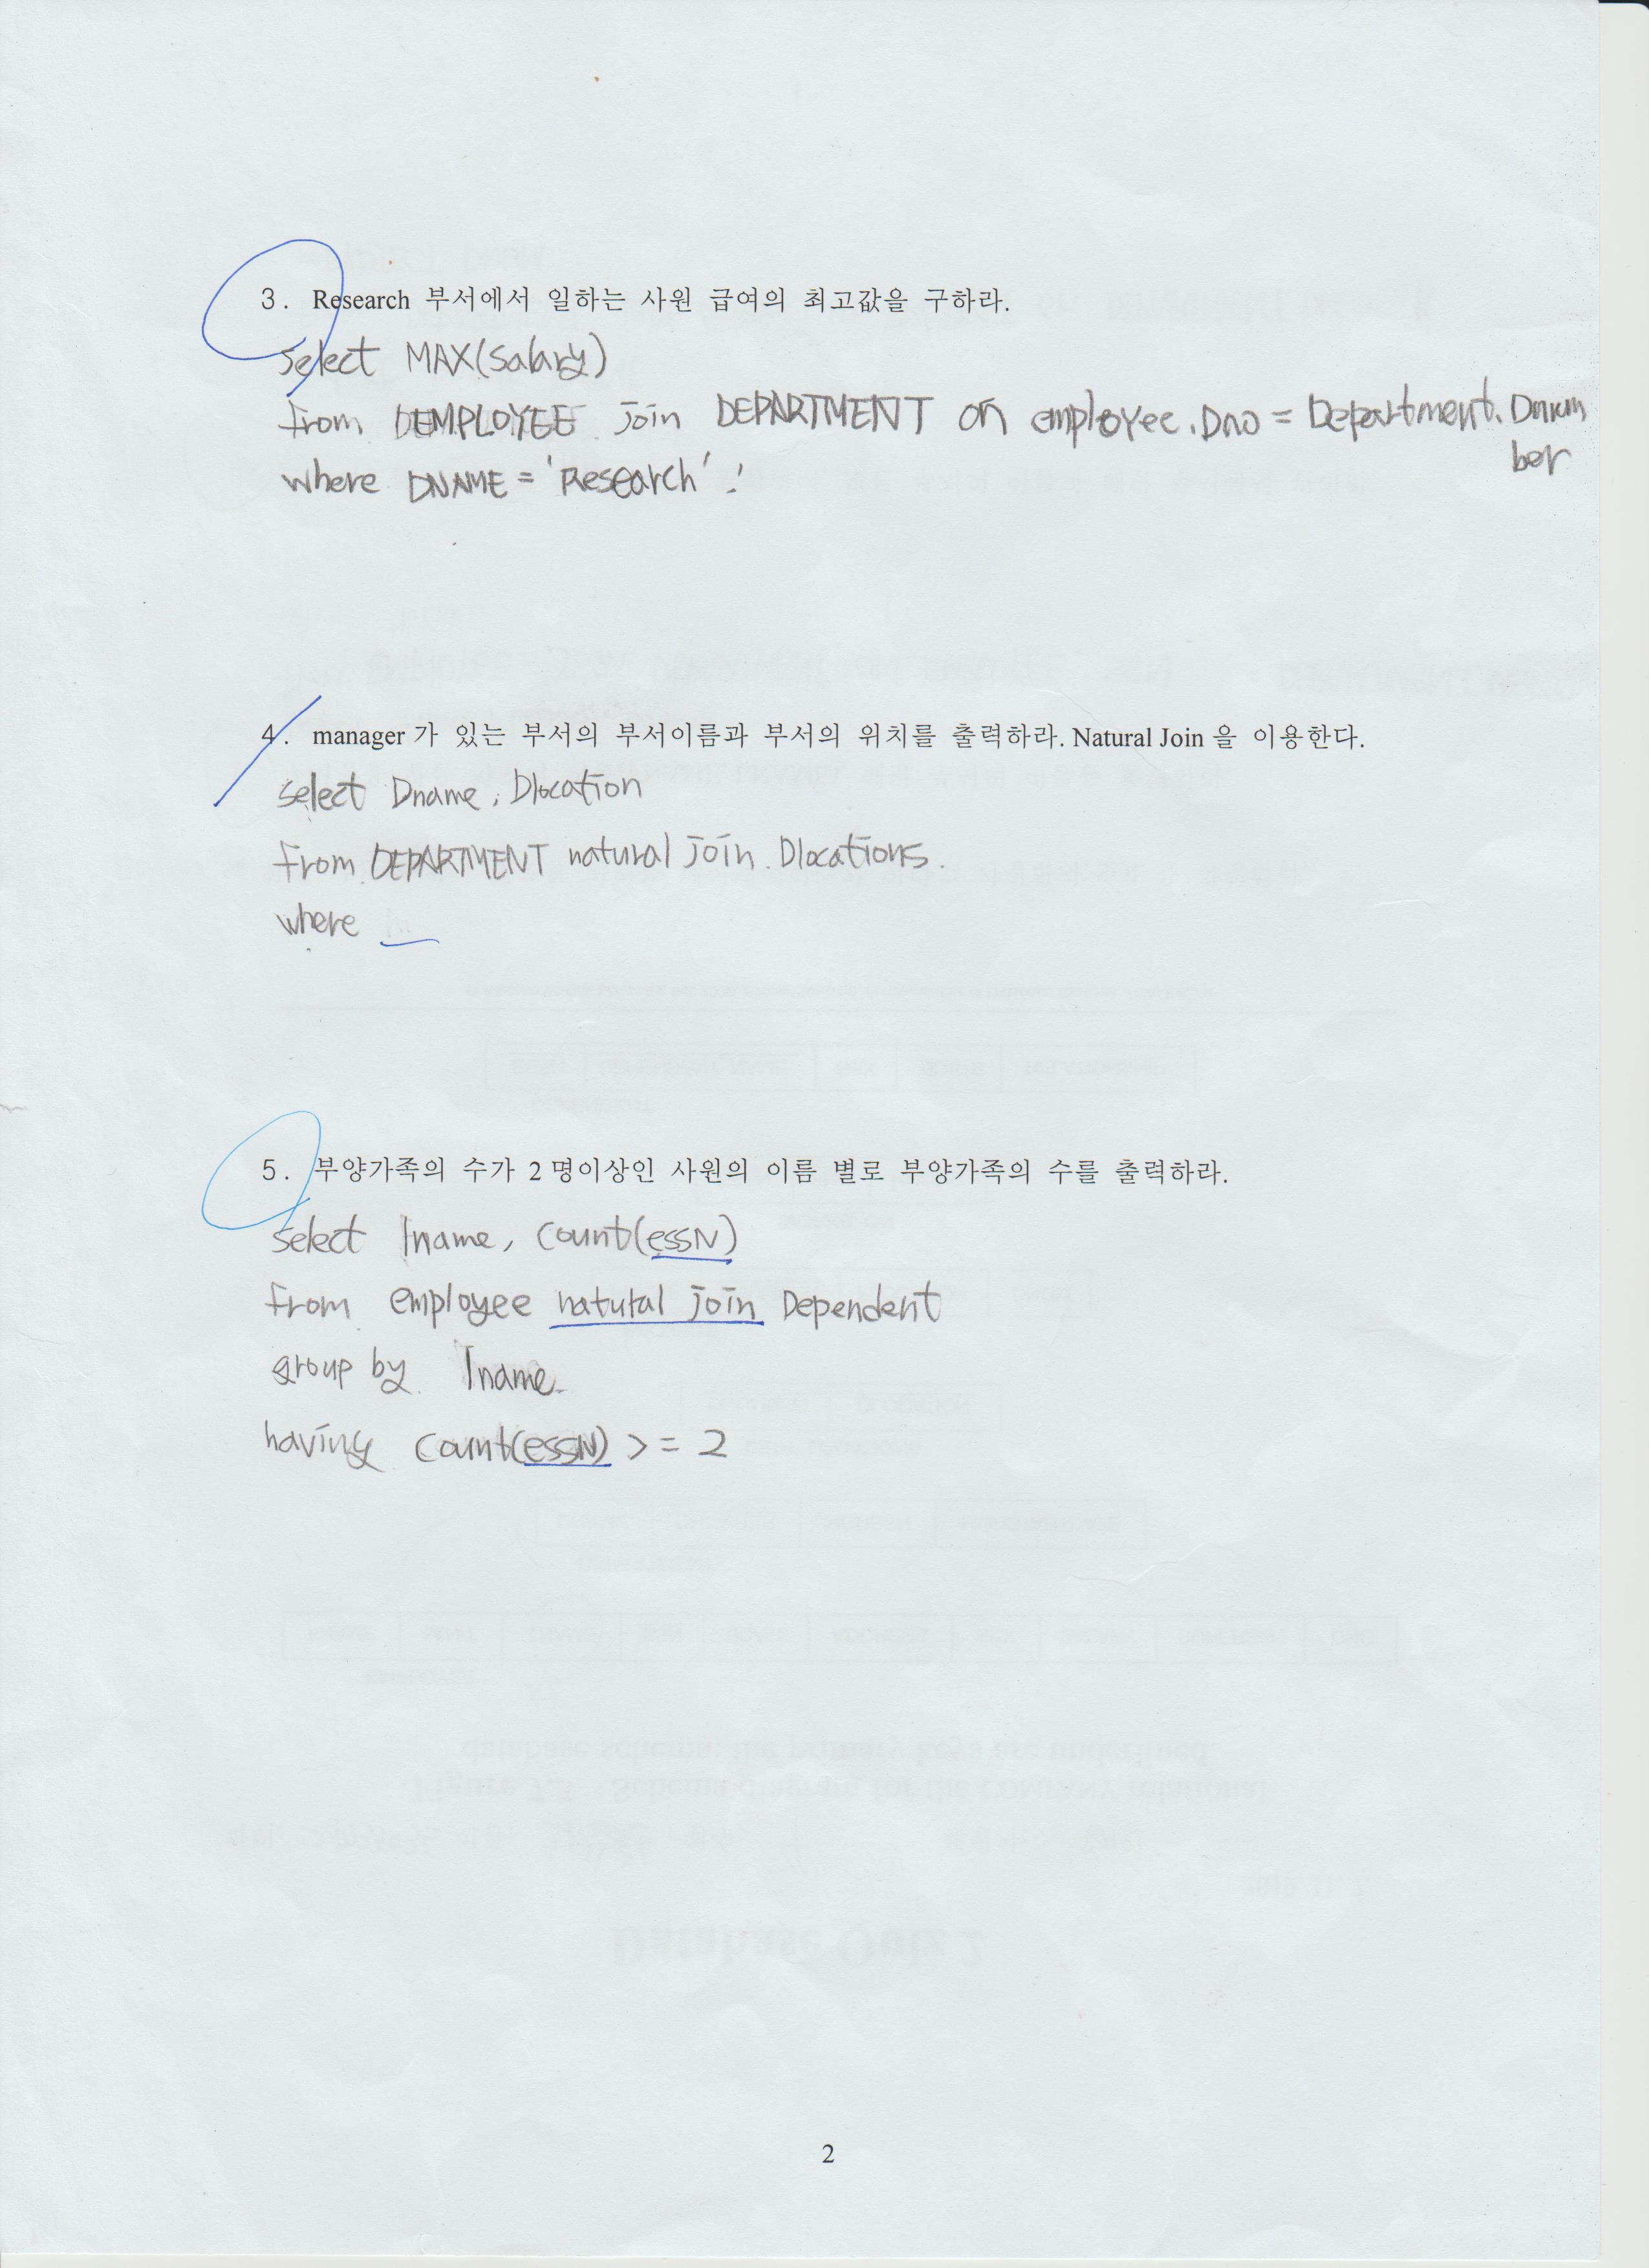 3. Research 부서에서 일하는 사원 급여의 최고값을 구하라.
select MAX(salary)
from EMPLOYEE join DEPARTMENT on employee.Dno = Department.Dnum
ber
where DNAME = 'Research'
4. manager가 있는 부서의 부서이름과 부서의 위치를 출력하라. Natural Join을 이용한다.
select Dname, Dlocation
from DEPARTMENT natural join Dlocations
where
5. 부양가족의 수가 2명이상인 사원의 이름 별로 부양가족의 수를 출력하라.
select lname, count(essN)
from employee natural join Dependent
group by lname
having count(essN) >= 2
2